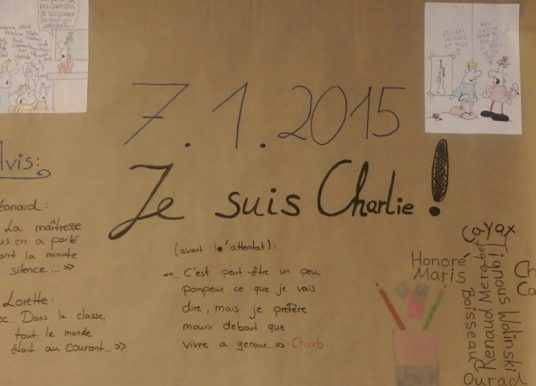 7.1.2015
Je suis Charlie !
Avis :
éonard :
La maîtresse
us en a parlé
ant la minute
silence... >>
Lorette :
Dans la classe,
tout le monde
était au courant... >>
(avant l'attentat) :
<< C'est peut-être un peu
pompeux ce que je vais
dire, mais je préfère
mourir debout que
vivre à genoux >> Charb
Honoré
Maris
Cayat
Tignous Wolinski
Renaud Merabet
Boisseau
Ourad
Ch
Ca